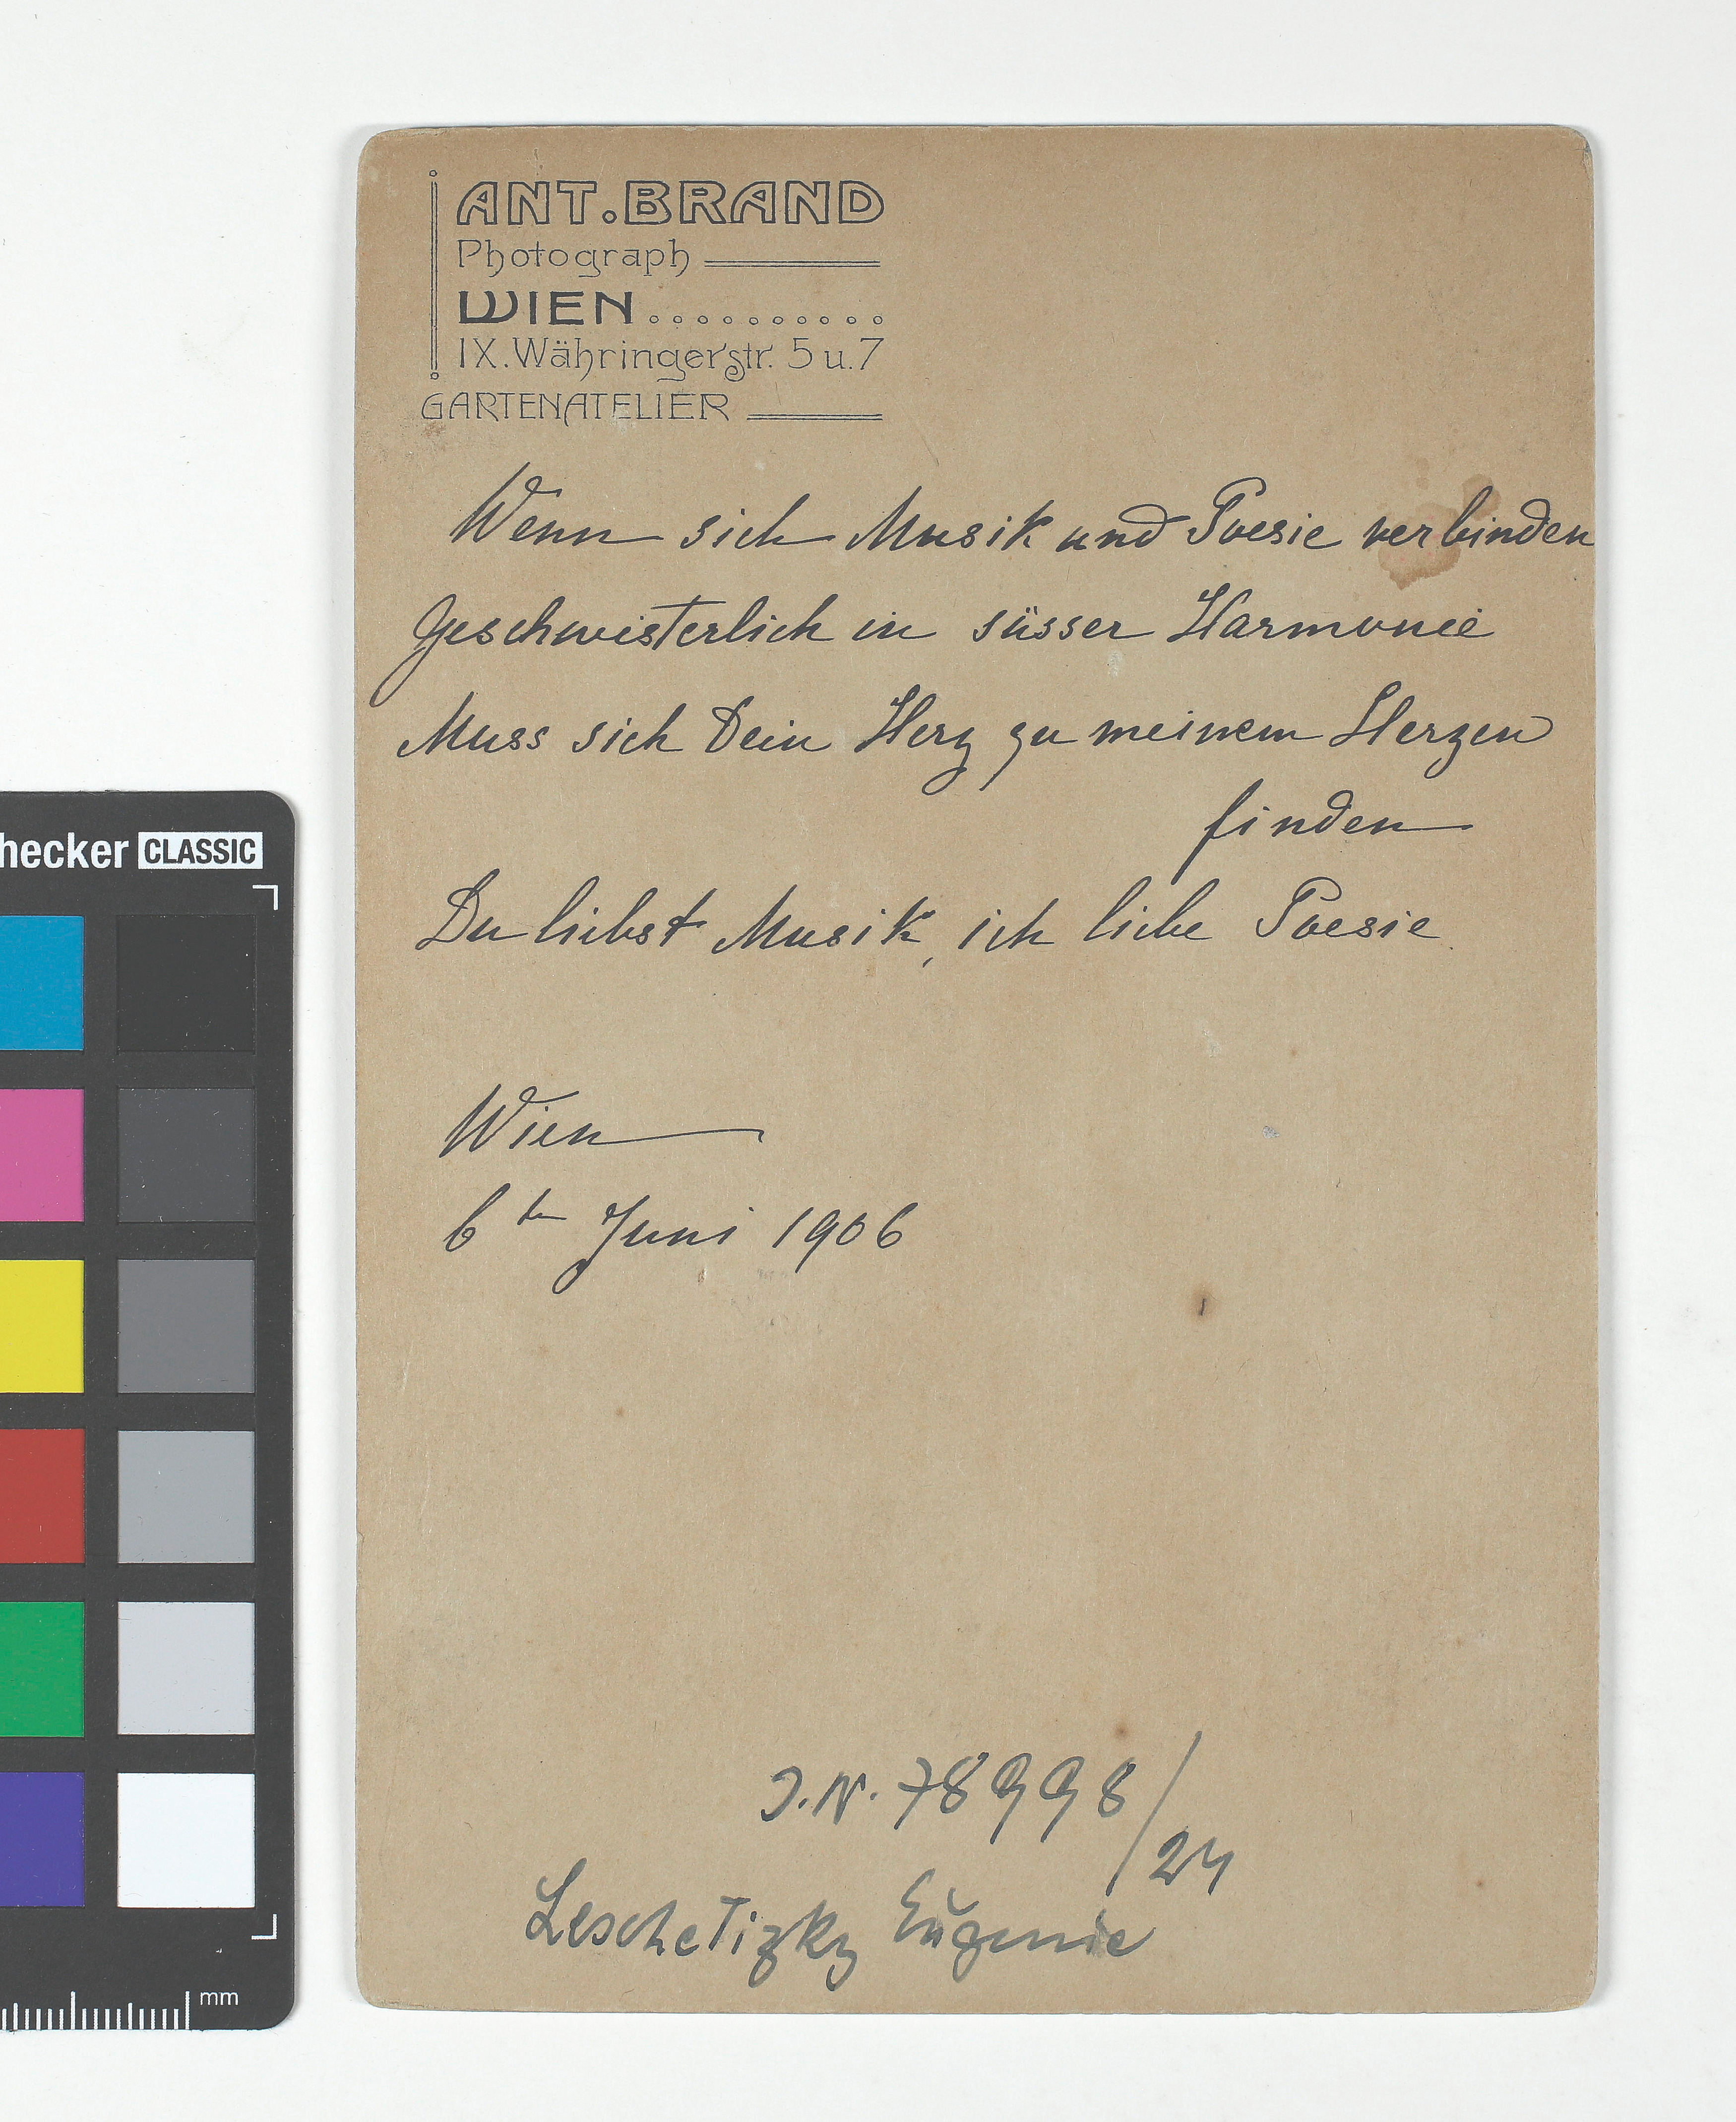 ANT. BRAND
Photograph
WIEN..........
IX. Währingerstr. 5 u. 7
GARTENATELIER
Wenn sich Musik und Poesie verbinden
Geschwisterlich in süsser Harmonie
Muss sich Dein Herz zu meinem Herzen
finden
Du liebst Musik, ich liebe Poesie.
Wien
6ten Juni 1906
J.N. 78998/24
Leschetizky Eugenie
hecker CLASSIC
mm